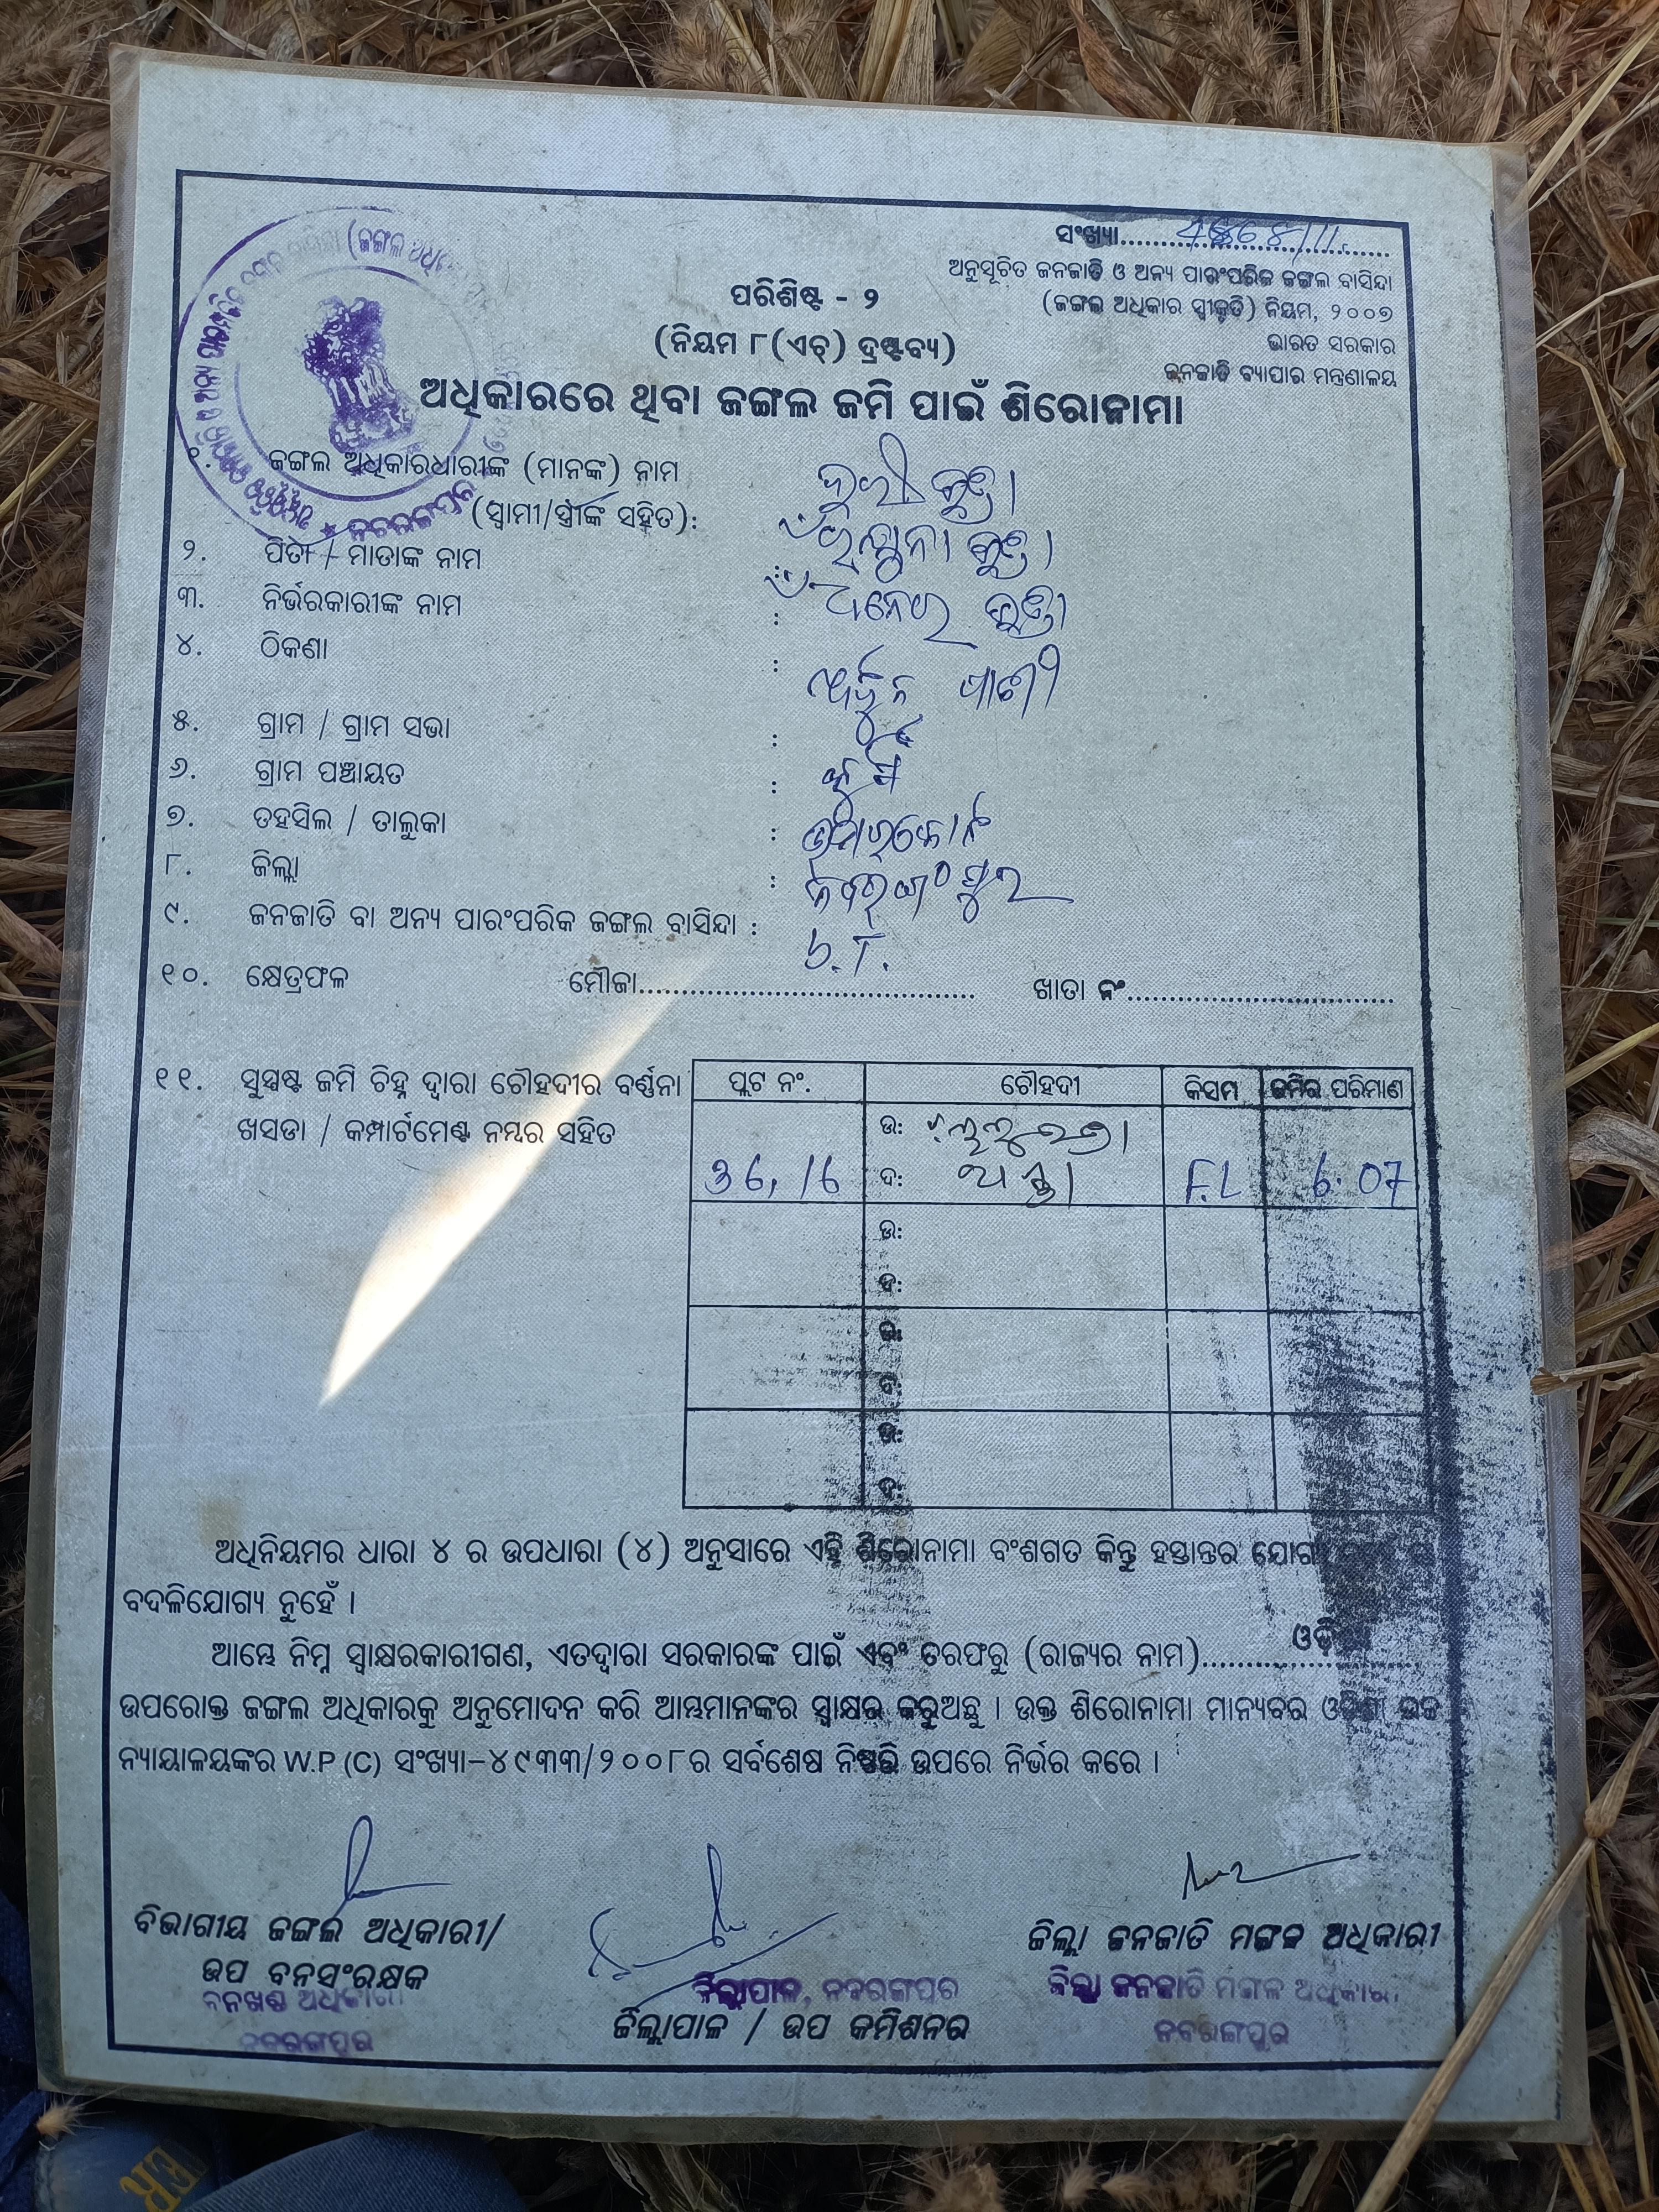 ସଂଖ୍ୟା
ଅନୁସୂଚିତ ଜନଜାତି ଓ ଅନ୍ୟ ପାରଂପରିକ ଜଙ୍ଗଲ ବାସିନ୍ଦା
(ଜଙ୍ଗଲ ଅଧିକାର ସ୍ୱୀକୃତି) ନିୟମ, ୨୦୦୭
ଭାରତ ସରକାର
ଜନଜାତି ବ୍ୟାପାର ମନ୍ତ୍ରଣାଳୟ
ପରିଶିଷ୍ଟ - ୨
(ନିୟମ ୮(ଏଚ୍) ଦ୍ରଷ୍ଟବ୍ୟ)
ଅଧିକାରରେ ଥିବା ଜଙ୍ଗଲ ଜମି ପାଇଁ ଶିରୋନାମା
୧. ଜଙ୍ଗଲ ଅଧିକାରଧାରୀଙ୍କ (ମାନଙ୍କ) ନାମ
(ସ୍ୱାମୀ/ସ୍ତ୍ରୀଙ୍କ ସହିତ):
୨. ପିତା / ମାତାଙ୍କ ନାମ :
୩. ନିର୍ଭରକାରୀଙ୍କ ନାମ :
୪. ଠିକଣା :
୫. ଗ୍ରାମ / ଗ୍ରାମ ସଭା :
୬. ଗ୍ରାମ ପଞ୍ଚାୟତ :
୭. ତହସିଲ / ତାଲୁକା : ଉମରକୋଟ
୮. ଜିଲ୍ଲା : ନବରଂଗପୁର
୯. ଜନଜାତି ବା ଅନ୍ୟ ପାରଂପରିକ ଜଙ୍ଗଲ ବାସିନ୍ଦା :
୧୦. କ୍ଷେତ୍ରଫଳ ମୌଜା ଖାତା ନଂ
୧୧. ସୁସ୍ପଷ୍ଟ ଜମି ଚିହ୍ନ ଦ୍ୱାରା ଚୌହଦୀର ବର୍ଣ୍ଣନା
ଖସଡା / କମ୍ପାର୍ଟମେଣ୍ଟ ନମ୍ବର ସହିତ
ପ୍ଲଟ ନଂ. ଚୌହଦୀ କିସମ ଜମିର ପରିମାଣ
ଉ:
ଦ: F.L 6.07
ଉ:
ଦ:
ଉ:
ଦ:
ଉ:
ଦ:
ଅଧିନିୟମର ଧାରା ୪ ର ଉପଧାରା (୪) ଅନୁସାରେ ଏହି ଶିରୋନାମା ବଂଶଗତ କିନ୍ତୁ ହସ୍ତାନ୍ତର ଯୋଗ୍ୟ
ବଦଳିଯୋଗ୍ୟ ନୁହେଁ ।
ଆମ୍ଭେ ନିମ୍ନ ସ୍ୱାକ୍ଷରକାରୀଗଣ, ଏତଦ୍ୱାରା ସରକାରଙ୍କ ପାଇଁ ଏବଂ ତରଫରୁ (ରାଜ୍ୟର ନାମ) ଓଡ଼ିଶା
ଉପରୋକ୍ତ ଜଙ୍ଗଲ ଅଧିକାରକୁ ଅନୁମୋଦନ କରି ଆମ୍ଭମାନଙ୍କର ସ୍ୱାକ୍ଷର କରୁଅଛୁ । ଉକ୍ତ ଶିରୋନାମା ମାନ୍ୟବର ଓଡ଼ିଶା ଉଚ୍ଚ
ନ୍ୟାୟାଳୟଙ୍କର W.P (C) ସଂଖ୍ୟା-୪୯୩୩/୨୦୦୮ର ସର୍ବଶେଷ ନିଷ୍ପତ୍ତି ଉପରେ ନିର୍ଭର କରେ ।
ବିଭାଗୀୟ ଜଙ୍ଗଲ ଅଧିକାରୀ/
ଉପ ବନସଂରକ୍ଷକ
ବନଖଣ୍ଡ ଅଧିକାରୀ
ନବରଙ୍ଗପୁର
ଜିଲ୍ଲାପାଳ, ନବରଙ୍ଗପୁର
ଜିଲ୍ଲାପାଳ / ଉପ କମିଶନର
ଜିଲ୍ଲା ଜନଜାତି ମଙ୍ଗଳ ଅଧିକାରୀ
ଜିଲ୍ଲା ଜନଜାତି ମଙ୍ଗଳ ଅଧିକାରୀ
ନବରଙ୍ଗପୁର